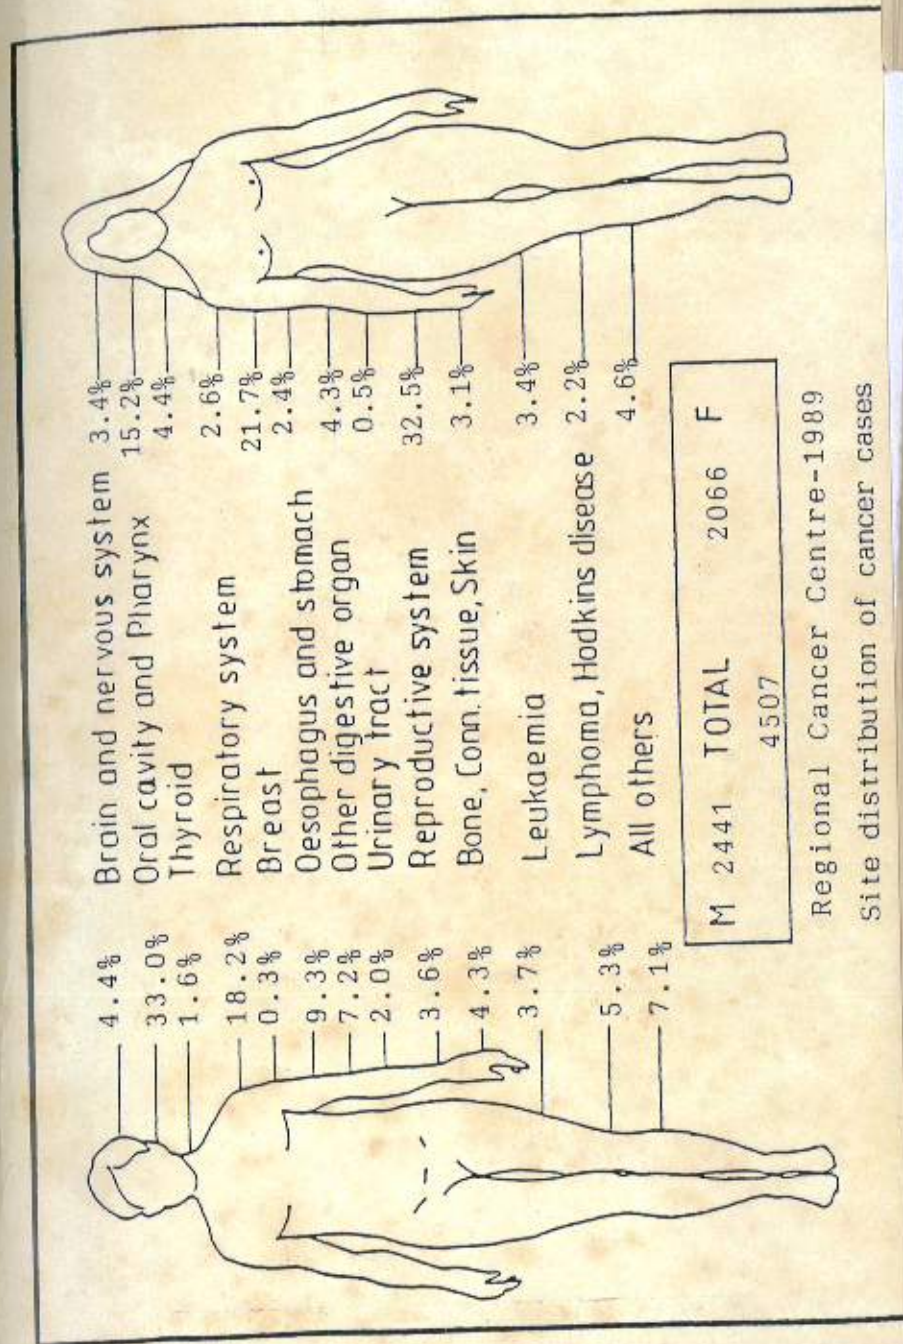 4.4% Brain and nervous system 3.4%
33.0% Oral cavity and Pharynx 15.2%
1.6% Thyroid 4.4%
18.2% Respiratory system 2.6%
0.3% Breast 21.7%
9.3% Oesophagus and stomach 2.4%
7.2% Other digestive organ 4.3%
2.0% Urinary tract 0.5%
3.6% Reproductive system 32.5%
4.3% Bone, Conn. tissue, Skin 3.1%
3.7% Leukaemia 3.4%
5.3% Lymphoma, Hodkins disease 2.2%
7.1% All others 4.6%
M 2441 TOTAL 2066 F
4507
Regional Cancer Centre-1989
Site distribution of cancer cases